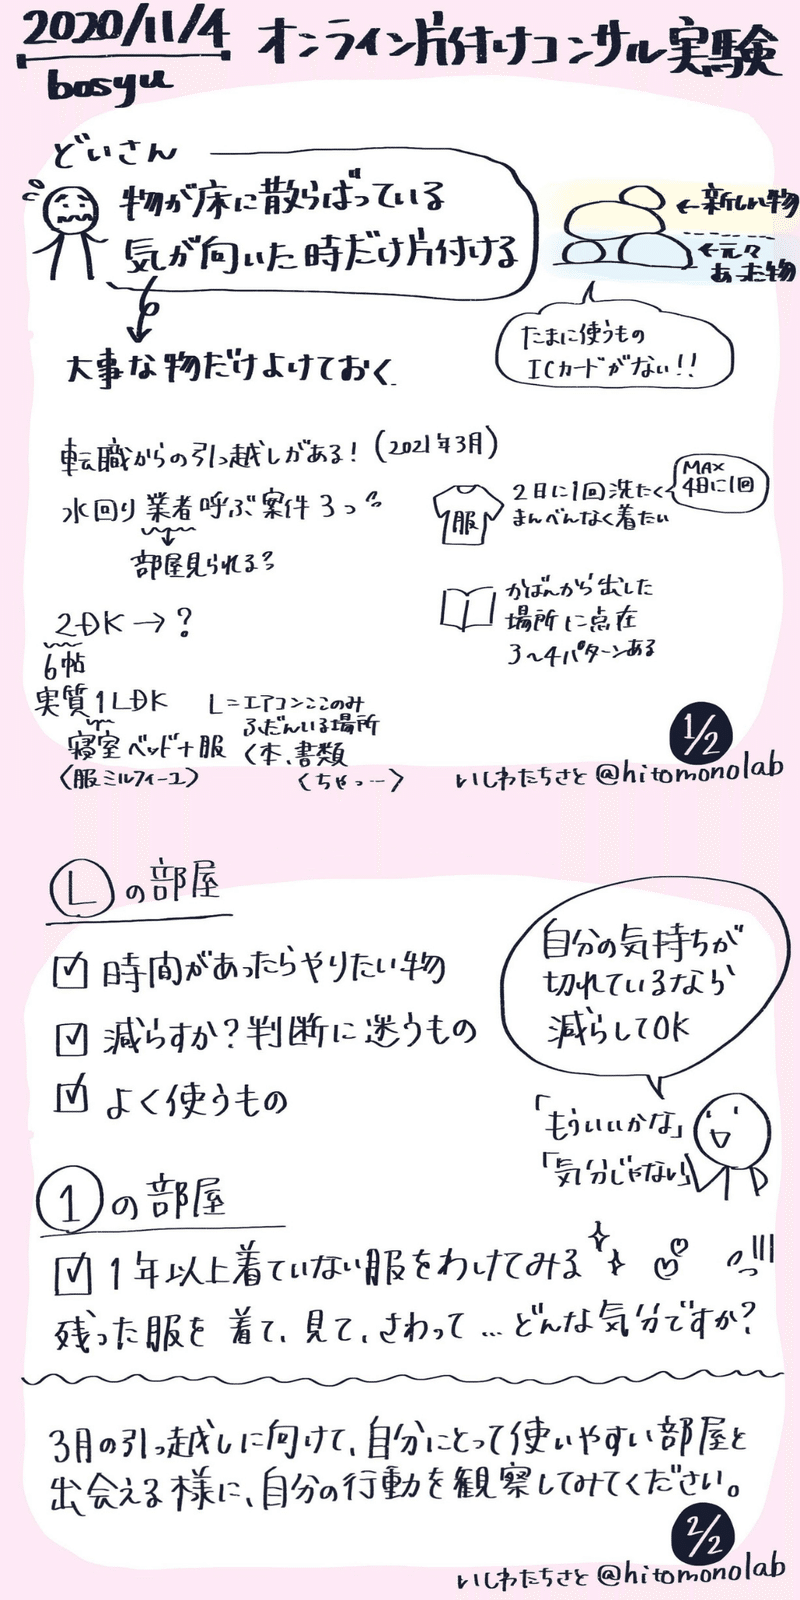 2020/11/4 オンライン片付けコンサル実験
bosyu
どいさん
物が床に散らばっている
気が向いた時だけ片付ける
大事な物だけよけておく
←新しい物
←元々
あった物
たまに使うもの
ICカードがない!!
転職からの引っ越しがある!(2021年3月)
水回り業者呼ぶ案件3つ
部屋見られる?
服
2日に1回洗たく
まんべんなく着たい
MAX
4日に1回
かばんから出した
場所に点在
3〜4パターンある
2DK→?
6帖
実質1LDK
寝室ベッド+服
〈服ミルフィーユ〉
L=エアコンここのみ
ふだんいる場所
く本、書類
〈ちゃっ…〉
1/2
いしわたちさと@hitomonolab
Lの部屋
☑時間があったらやりたい物
☑減らすか?判断に迷うもの
☑よく使うもの
自分の気持ちが
切れているなら
減らしてOK
「もういいかな」
「気分じゃない」
1の部屋
☑1年以上着ていない服をわけてみる
残った服を着て、見て、さわって…どんな気分ですか?
3月の引っ越しに向けて、自分にとって使いやすい部屋と
出会える様に、自分の行動を観察してみてください。
2/2
いしわたちさと@hitomonolab